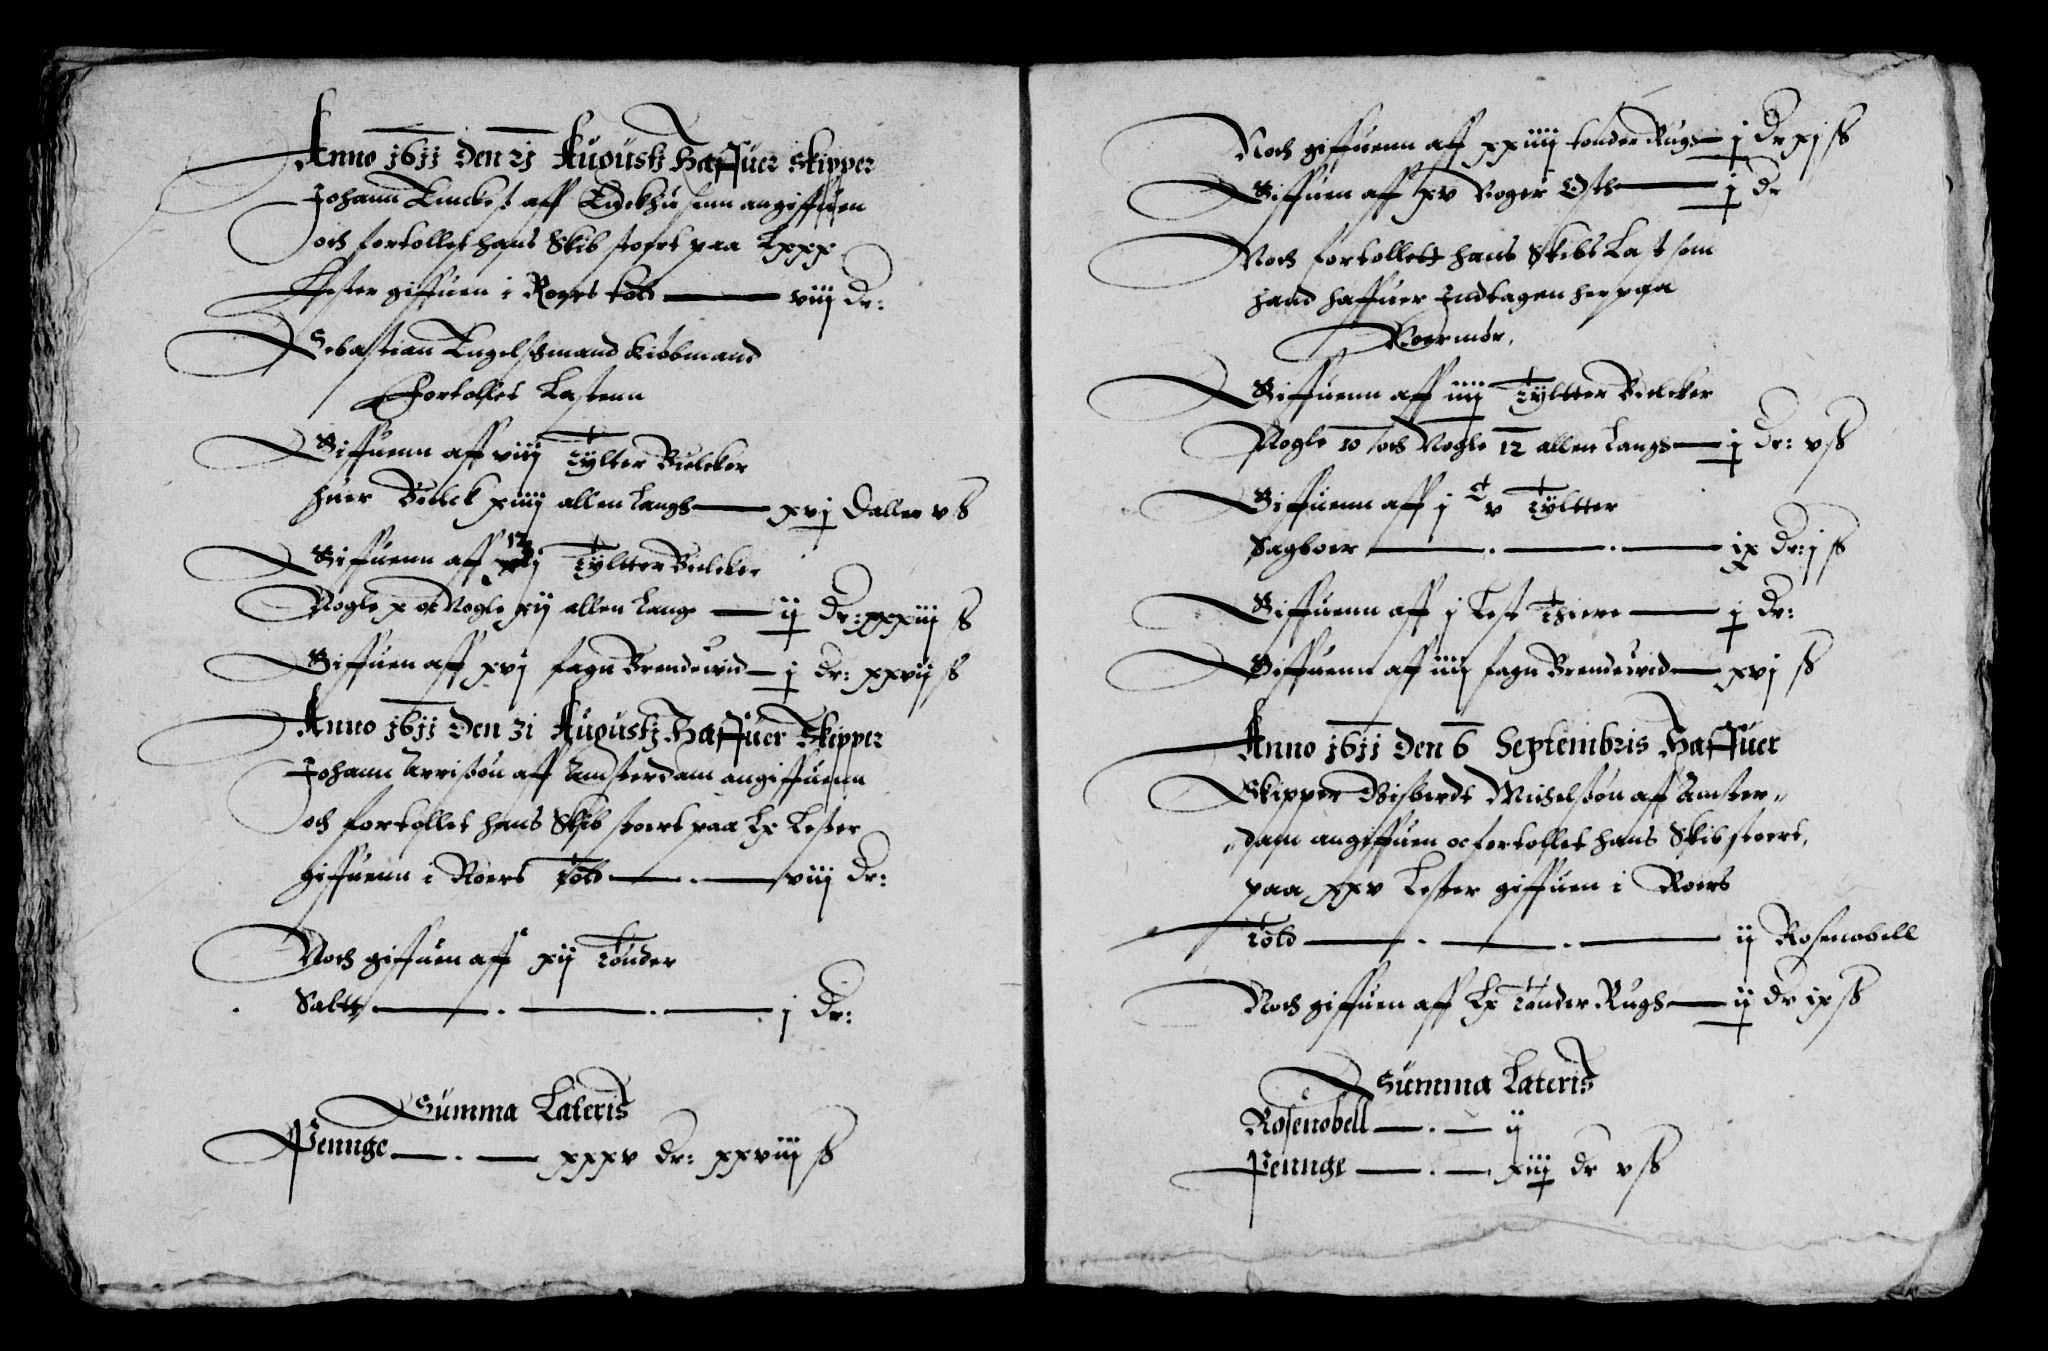 Anno 1611 Den 21 Augustj Haffuer Skipper
Johann aff angiffuen
och fortollet hans Skib stoert paa Lxxx
Lester giffuen i Roers told viij Dr:
Sebastian Engelschmand kiöbmand
Fortollet Lastenn
Giffuenn aff viij Tylter Bielcker
huer Bielck xiiij allen Langh xvj Daller v ß
Giffuenn aff 12 Tyltter Bielcker
Nogle x oc Nogle xij allen Lange ij Dr: xxxiij ß
Giffuen aff xvj fagn Brendeuid j Dr: xxvij ß
Anno 1611 Den 31 Augustj Haffuer Skipper
Johann Arrisßön aff Amsterdam angiffuenn
och fortollet hans Skib stoert paa Lx Lester
giffuenn i Roers Told viij Dr:
Noch giffuen aff xij Tönder
Saltt j Dr:
Summa Lateris
Pennge xxxv dr: xxviij ß
Noch giffuenn aff xxiiij tönder Rugh j Dr xj ß
Giffuen aff xv Voger Osth j Dr
Noch fortollett hans Skibs Last som
hand haffuer Indtagen her paa
Noermör.
Giffuenn aff iiij Tyltter Bielcker
Nogle 10 och Nogle 12 allen Langh j Dr: v ß
Giffuenn aff j c v Tyltter
Sagboer ix Dr: j ß
Giffuenn aff j Lest Thiere j Dr:
Giffuenn aff iiij fagn Brendeuid xvj ß
Anno 1611 Den 6 Septembris Haffuer
Skipper Gisberdt Michelsßön aff Amster-
dam angiffuen oc fortollet hans Skib stoert
paa xxv Lester giffuen i Roers
Told ij Rosenobell
Noch giffuen aff Lx Tönder Rugh ij dr ix ß
Summa Lateris
Rosenobell ij
Pennge xiij dr v ß